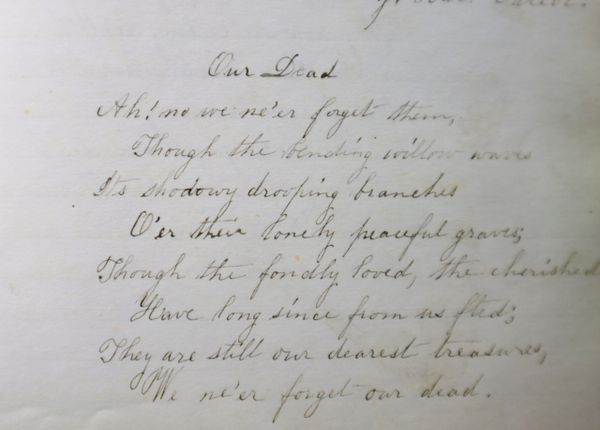 Our Dead
Ah! no we ne'er forget them,
Though the bending willow waves
Its shadowy drooping branches
O'er their lonely peaceful graves;
Though the fondly loved, the cherished
Have long since from us fled;
They are still our dearest treasures,
We ne'er forget our dead.